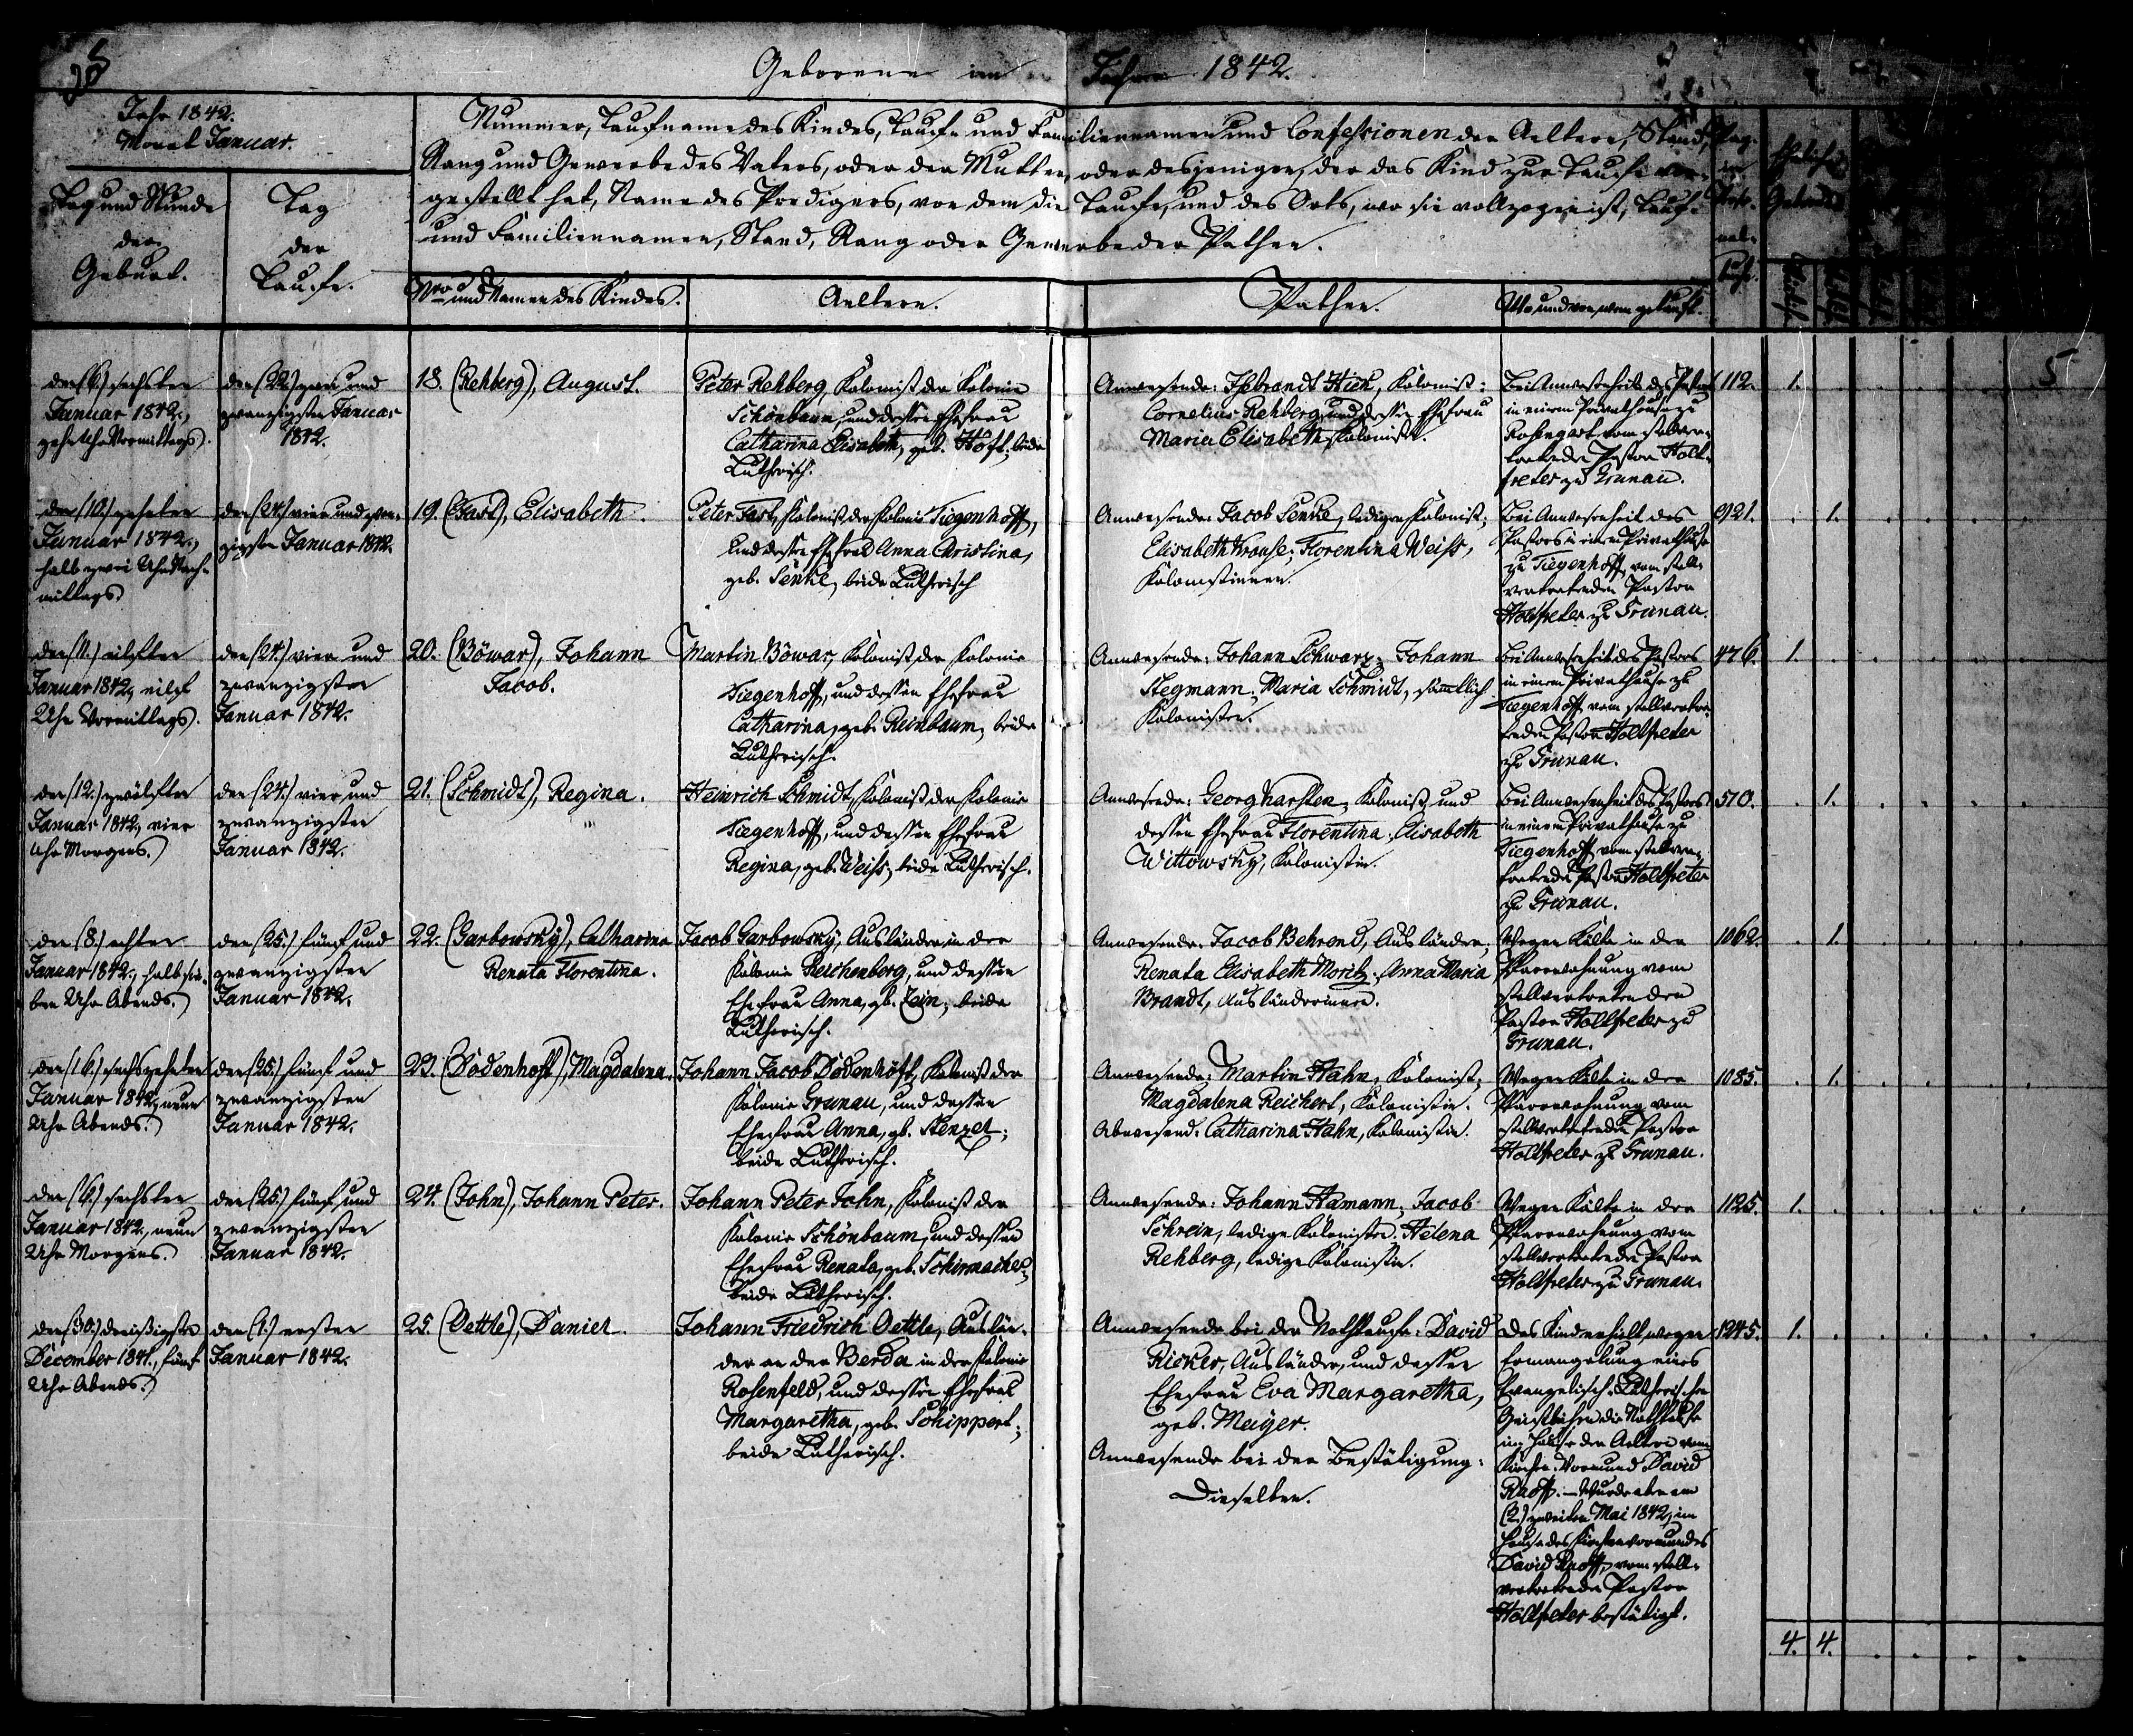 Geborene im Jahre 1842.
5
Jahr 1842.
Monat Januar.
Tag und Stunde
der
Geburt.
Tag
der
Taufe.
Nummer, Taufname des Kindes, Tauf- und Familiennamen und Confessionen der Aeltern, Stand,
Rang und Gewerbe des Vaters, oder der Mutter, oder desjenigen, der das Kind zur Taufe vor-
gestellt hat, Name des Predigers, von dem die Taufe, und des Orts, wo sie vollzogen ist, Tauf-
und Familiennamen, Stand, Rang oder Gewerbe der Pathen.
Nro und Namen des Kindes.
Aeltern.
Pathen.
Wo und von wem getauft.
den (6.) sechsten
Januar 1842.,
zehn Uhr Vormittags.
den (22.) zwei und
zwanzigsten Januar
1842.
18. (Rehberg), August.
Peter Rehberg, Kolonist der Kolonie
Schönbaum, und dessen Ehefrau
Catharina Elisabeth, geb. Höft; beide
Lutherisch.
Anwesende: Isbrandt Hiek, Kolonist;
Cornelius Rehberg und dessen Ehefrau
Maria Elisabeth, Kolonist.
Bei Anwesenheit des Pastors
in einem Privathause zu
Rosengart vom stellver-
tretenden Pastor Holt-
freter zu Grunau.
112.
1.
5
den (10.) zehnten
Januar 1842.,
halb zwei Uhr Nach-
mittags.
den (24.) vier und zwan-
zigsten Januar 1842.
19. (Fast), Elisabeth.
Peter Fast, Kolonist der Kolonie Tiegenhoff,
und dessen Ehefrau Anna Cristina,
geb. Senke, beide Lutherisch
Anwesende: Jacob Senke, lediger Kolonist;
Elisabeth Krause; Florentina Weiss,
Kolonistinnen.
Bei Anwesenheit des
Pastors in einem Privathause
zu Tiegenhoff, vom stell-
vertretenden Pastor
Holtfreter zu Grunau.
921.
1.
den (11.) eilften
Januar 1842., eilf
Uhr Vormittags.
den (24.) vier und
zwanzigsten
Januar 1842.
20. (Böwar), Johann
Jacob.
Martin Böwar, Kolonist der Kolonie
Tiegenhoff, und dessen Ehefrau
Catharina, geb. Reimbaum, beide
Lutherisch.
Anwesende: Johann Schwarz; Johann
Stegmann; Maria Schmidt, sämtlich
Kolonisten.
Bei Anwesenheit des Pastors
in einem Privathause zu
Tiegenhoff vom stellvertre-
tenden Pastor Holtfreter
zu Grunau.
476.
1.
den (12.) zwölften
Januar 1842., vier
Uhr Morgens.
den (24.) vier und
zwanzigsten
Januar 1842.
21. (Schmidt), Regina.
Heinrich Schmidt, Kolonist der Kolonie
Tiegenhoff, und dessen Ehefrau
Regina, geb. Weiss; beide Lutherisch.
Anwesende: Georg Karsten, Kolonist, und
dessen Ehefrau Florentina; Elisabeth
Wittowsky, Kolonistin.
Bei Anwesenheit des Pastors
in einem Privathause zu
Tiegenhoff vom stellver-
tretenden Pastor Holtfreter
zu Grunau.
510.
1.
den (8.) achten
Januar 1842., halb sie-
ben Uhr Abends.
den (25.) fünf und
zwanzigsten
Januar 1842.
22. (Garbowsky), Catharina
Renata Florentina.
Jacob Garbowsky, Ausländer in der
Kolonie Reichenberg, und dessen
Ehefrau Anna, gb. Zein; beide
Lutherisch.
Anwesende: Jacob Behrend, Ausländer;
Renata Elisabeth Moritz; Anna Maria
Brandt, Ausländerinnen.
Wegen Kälte in der
Pfarrwohnung vom
stellvertretenden
Pastor Holtfreter zu
Grunau.
1062.
1.
den (16.) sechszehnten
Januar 1842., neun
Uhr Abends.
den (25.) fünf und
zwanzigsten
Januar 1842.
23. (Dödenhöft), Magdalena.
Johann Jacob Dödenhöft, Kolonist der
Kolonie Grunau, und dessen
Ehefrau Anna, gb. Stenzel;
beide Lutherisch.
Anwesende: Martin Hahn, Kolonist;
Magdalena Reichert, Kolonistin.
Abwesend: Catharina Hahn, Kolonistin.
Wegen Kälte in der
Pfarrwohnung vom
stellvertretenden Pastor
Holtfreter zu Grunau.
1085.
1.
den (6.) sechsten
Januar 1842., neun
Uhr Morgens.
den (25.) fünf und
zwanzigsten
Januar 1842.
24. (John), Johann Peter.
Johann Peter John, Kolonist der
Kolonie Schönbaum, und dessen
Ehefrau Renata, geb. Schirmacher;
beide Lutherisch.
Anwesende: Johann Hamann; Jacob
Schrein, ledige Kolonisten; Helena
Rehberg, ledige Kolonistin.
Wegen Kälte in der
Pfarrwohnung vom
stellvertretenden Pastor
Holtfreter zu Grunau.
1125.
1.
den (30.) dreißigsten
December 1841., fünf
Uhr Abends.
den (1.) ersten
Januar 1842.
25. (Oettle), Daniel.
Johann Friedrich Oettle, Auslän-
der an der Berda in der Kolonie
Rosenfeld, und dessen Ehefrau
Margaretha, geb. Schippert;
beide Lutherisch.
Anwesende bei der Nothtaufe: David
Ricker, Ausländer, und dessen
Ehefrau Eva Margaretha,
geb. Mayer.
Anwesende bei der Bestätigung:
Dieselben.
Das Kind erhielt wegen
Ermangelung eines
Evangelisch-Lutherischen
Geistlichen die Nothtaufe
im Hause der Aeltern vom
Kirchen-Vormund David
Knoff. – Wurde aber am
(2.) zweiten Mai 1842., im
Hause des Kirchenvormundes
David Knoff, vom stell-
vertretenden Pastor
Holtfreter bestätigt.
1245.
1.
4. 4.